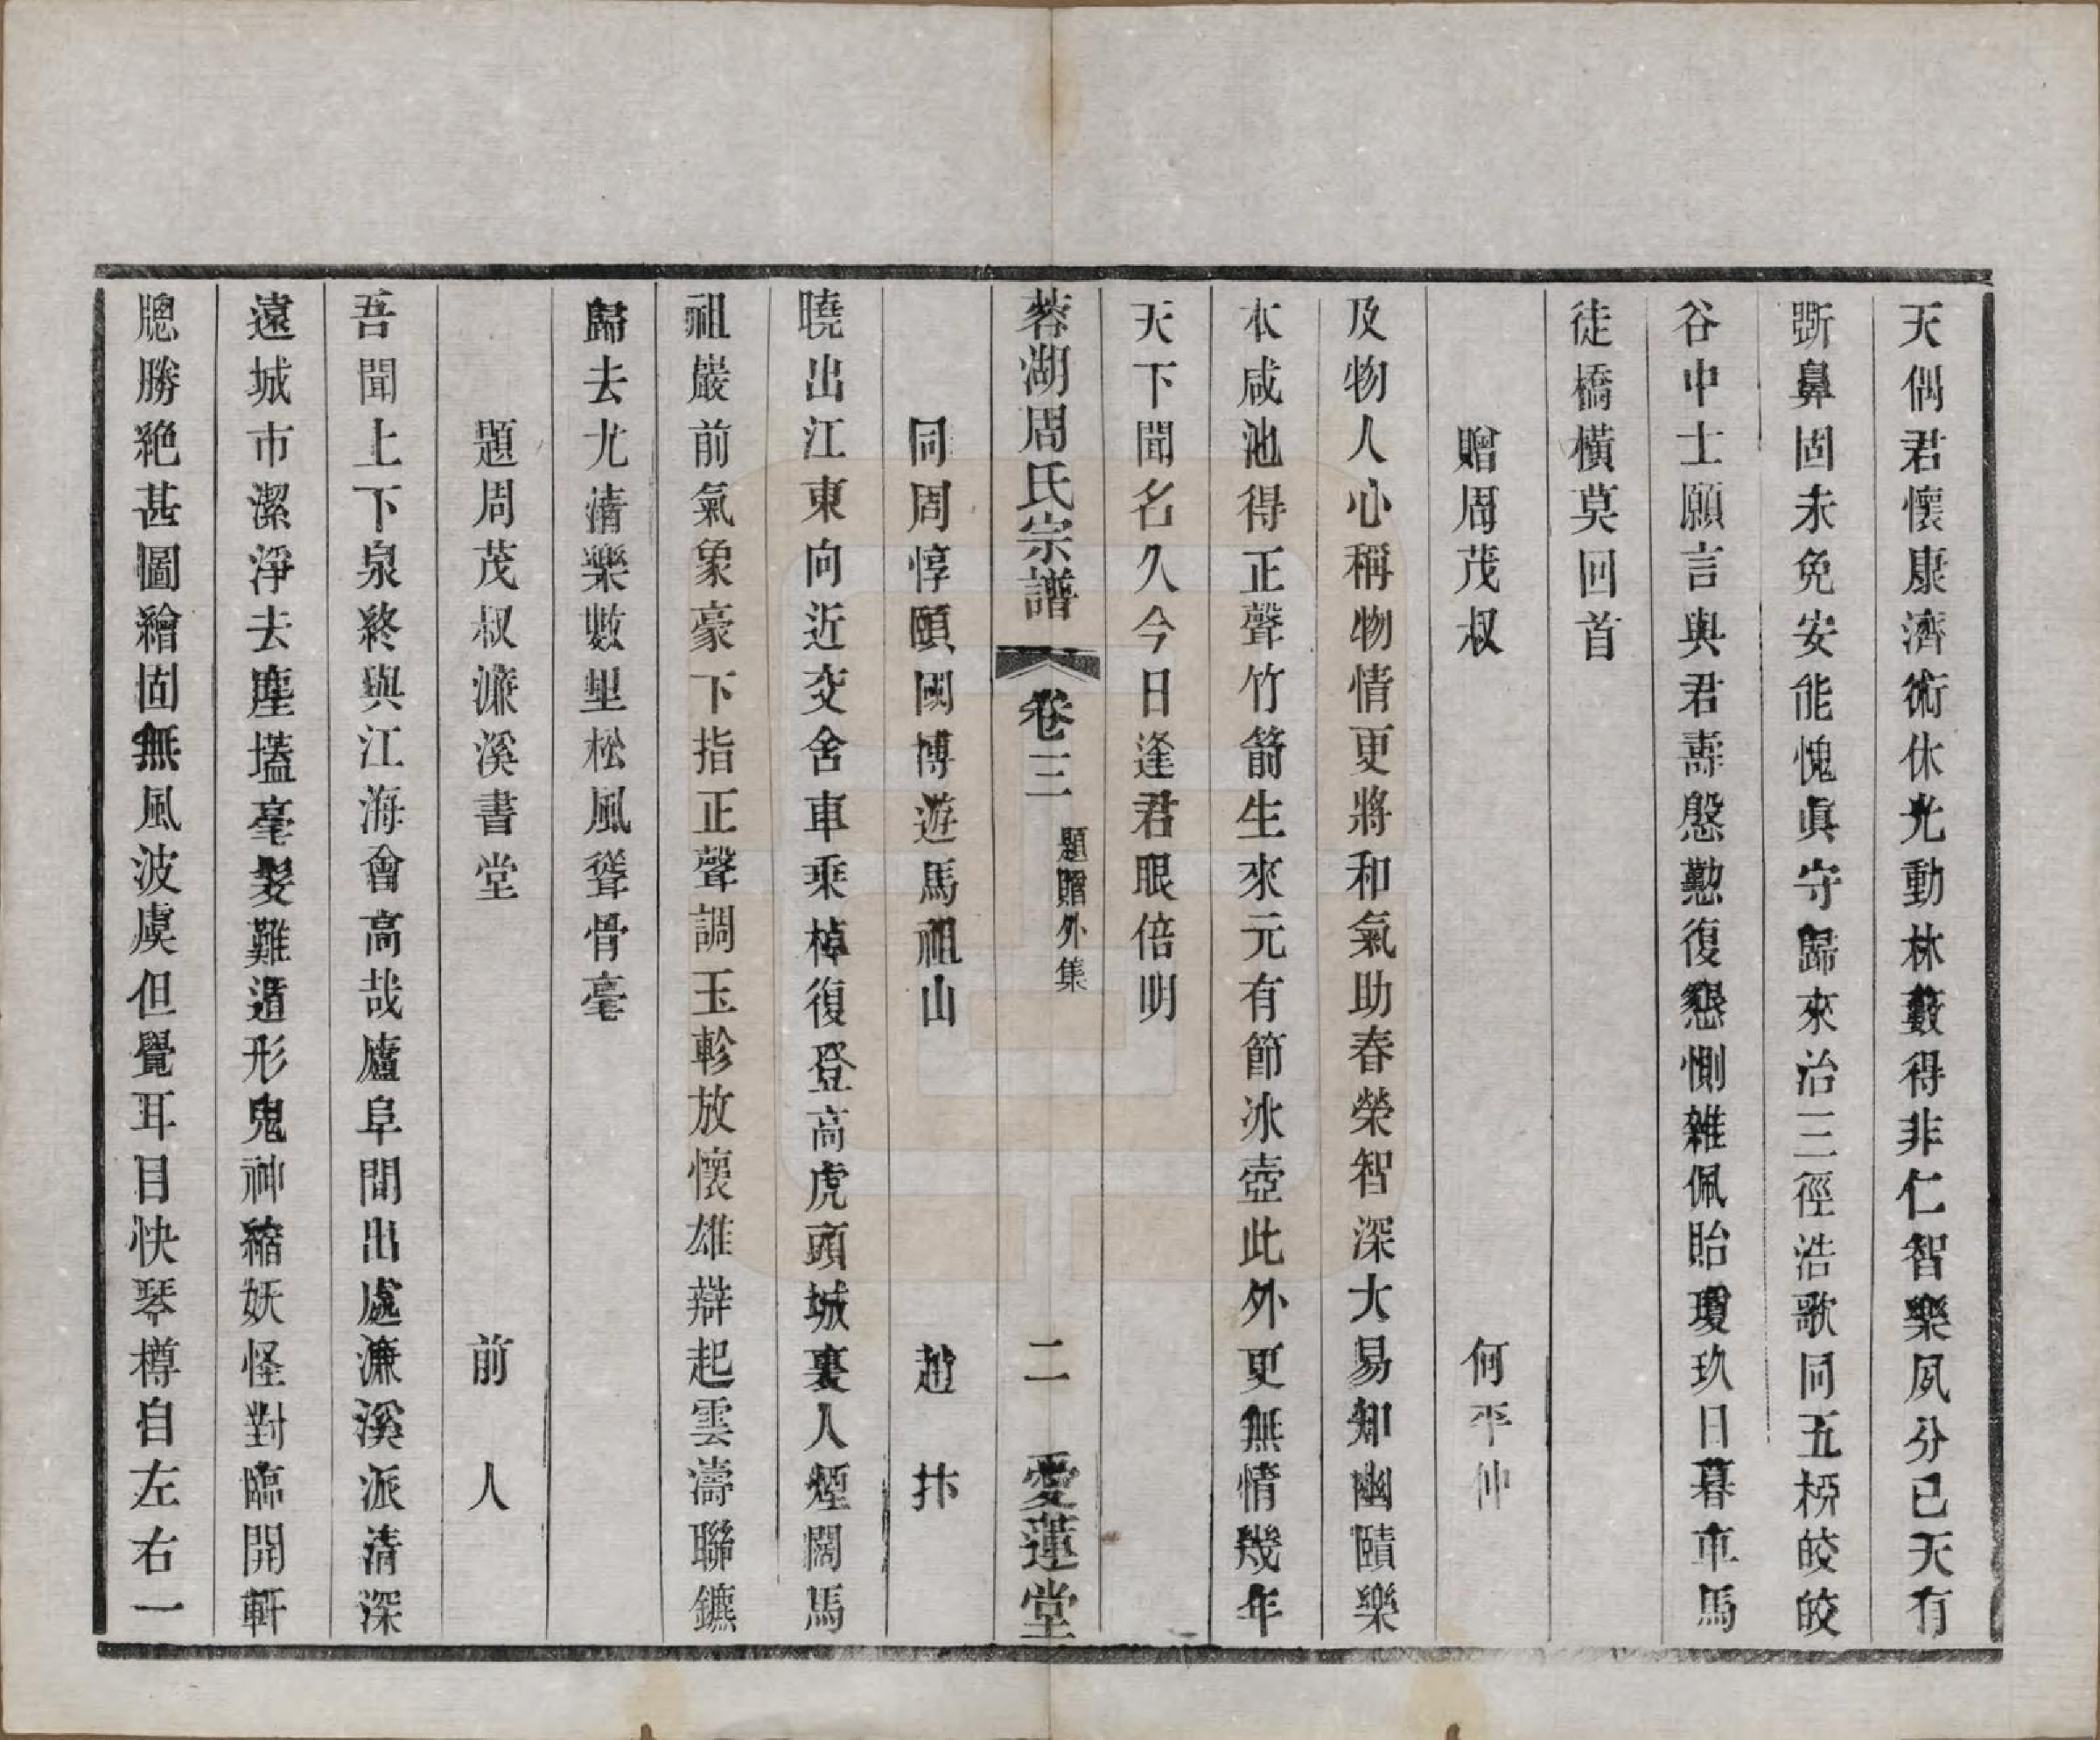 天偶君懷康濟術休光動林藪得非仁智樂夙分已天有
斲鼻固未免安能愧眞守歸來治三徑浩歌同五桞皎皎
谷中士願言與君壽慇懃復懇惻雜佩貽瓊玖日暮車馬
徒橋橫莫回首
贈周茂叔 何平仲
及物人心稱物情更將和氣助春榮智深大易知幽賾樂
本咸池得正聲竹箭生來元有節冰壺此外更無情幾年
天下聞名久今日逢君眼倍明
蓉湖周氏宗譜 卷三 題贈外集 二 愛蓮堂
同周惇頤國博遊馬祖山 趙 抃
曉出江東向近交舍車乘棹復登高虎頭城裏人煙闊馬
祖巖前氣象豪下指正聲調玉軫放懷雄辯起雲濤聯鑣
歸去尤清樂數里松風聳骨毫
題周茂叔濂溪書堂 前 人
吾聞上下泉終與江海會高哉廬阜間出處濂溪派清深
遠城市潔淨去塵壒毫髮難遁形鬼神縮妖怪對臨開軒
牎勝絶甚圖繪固無風波虞但覺耳目快琴樽自左右一